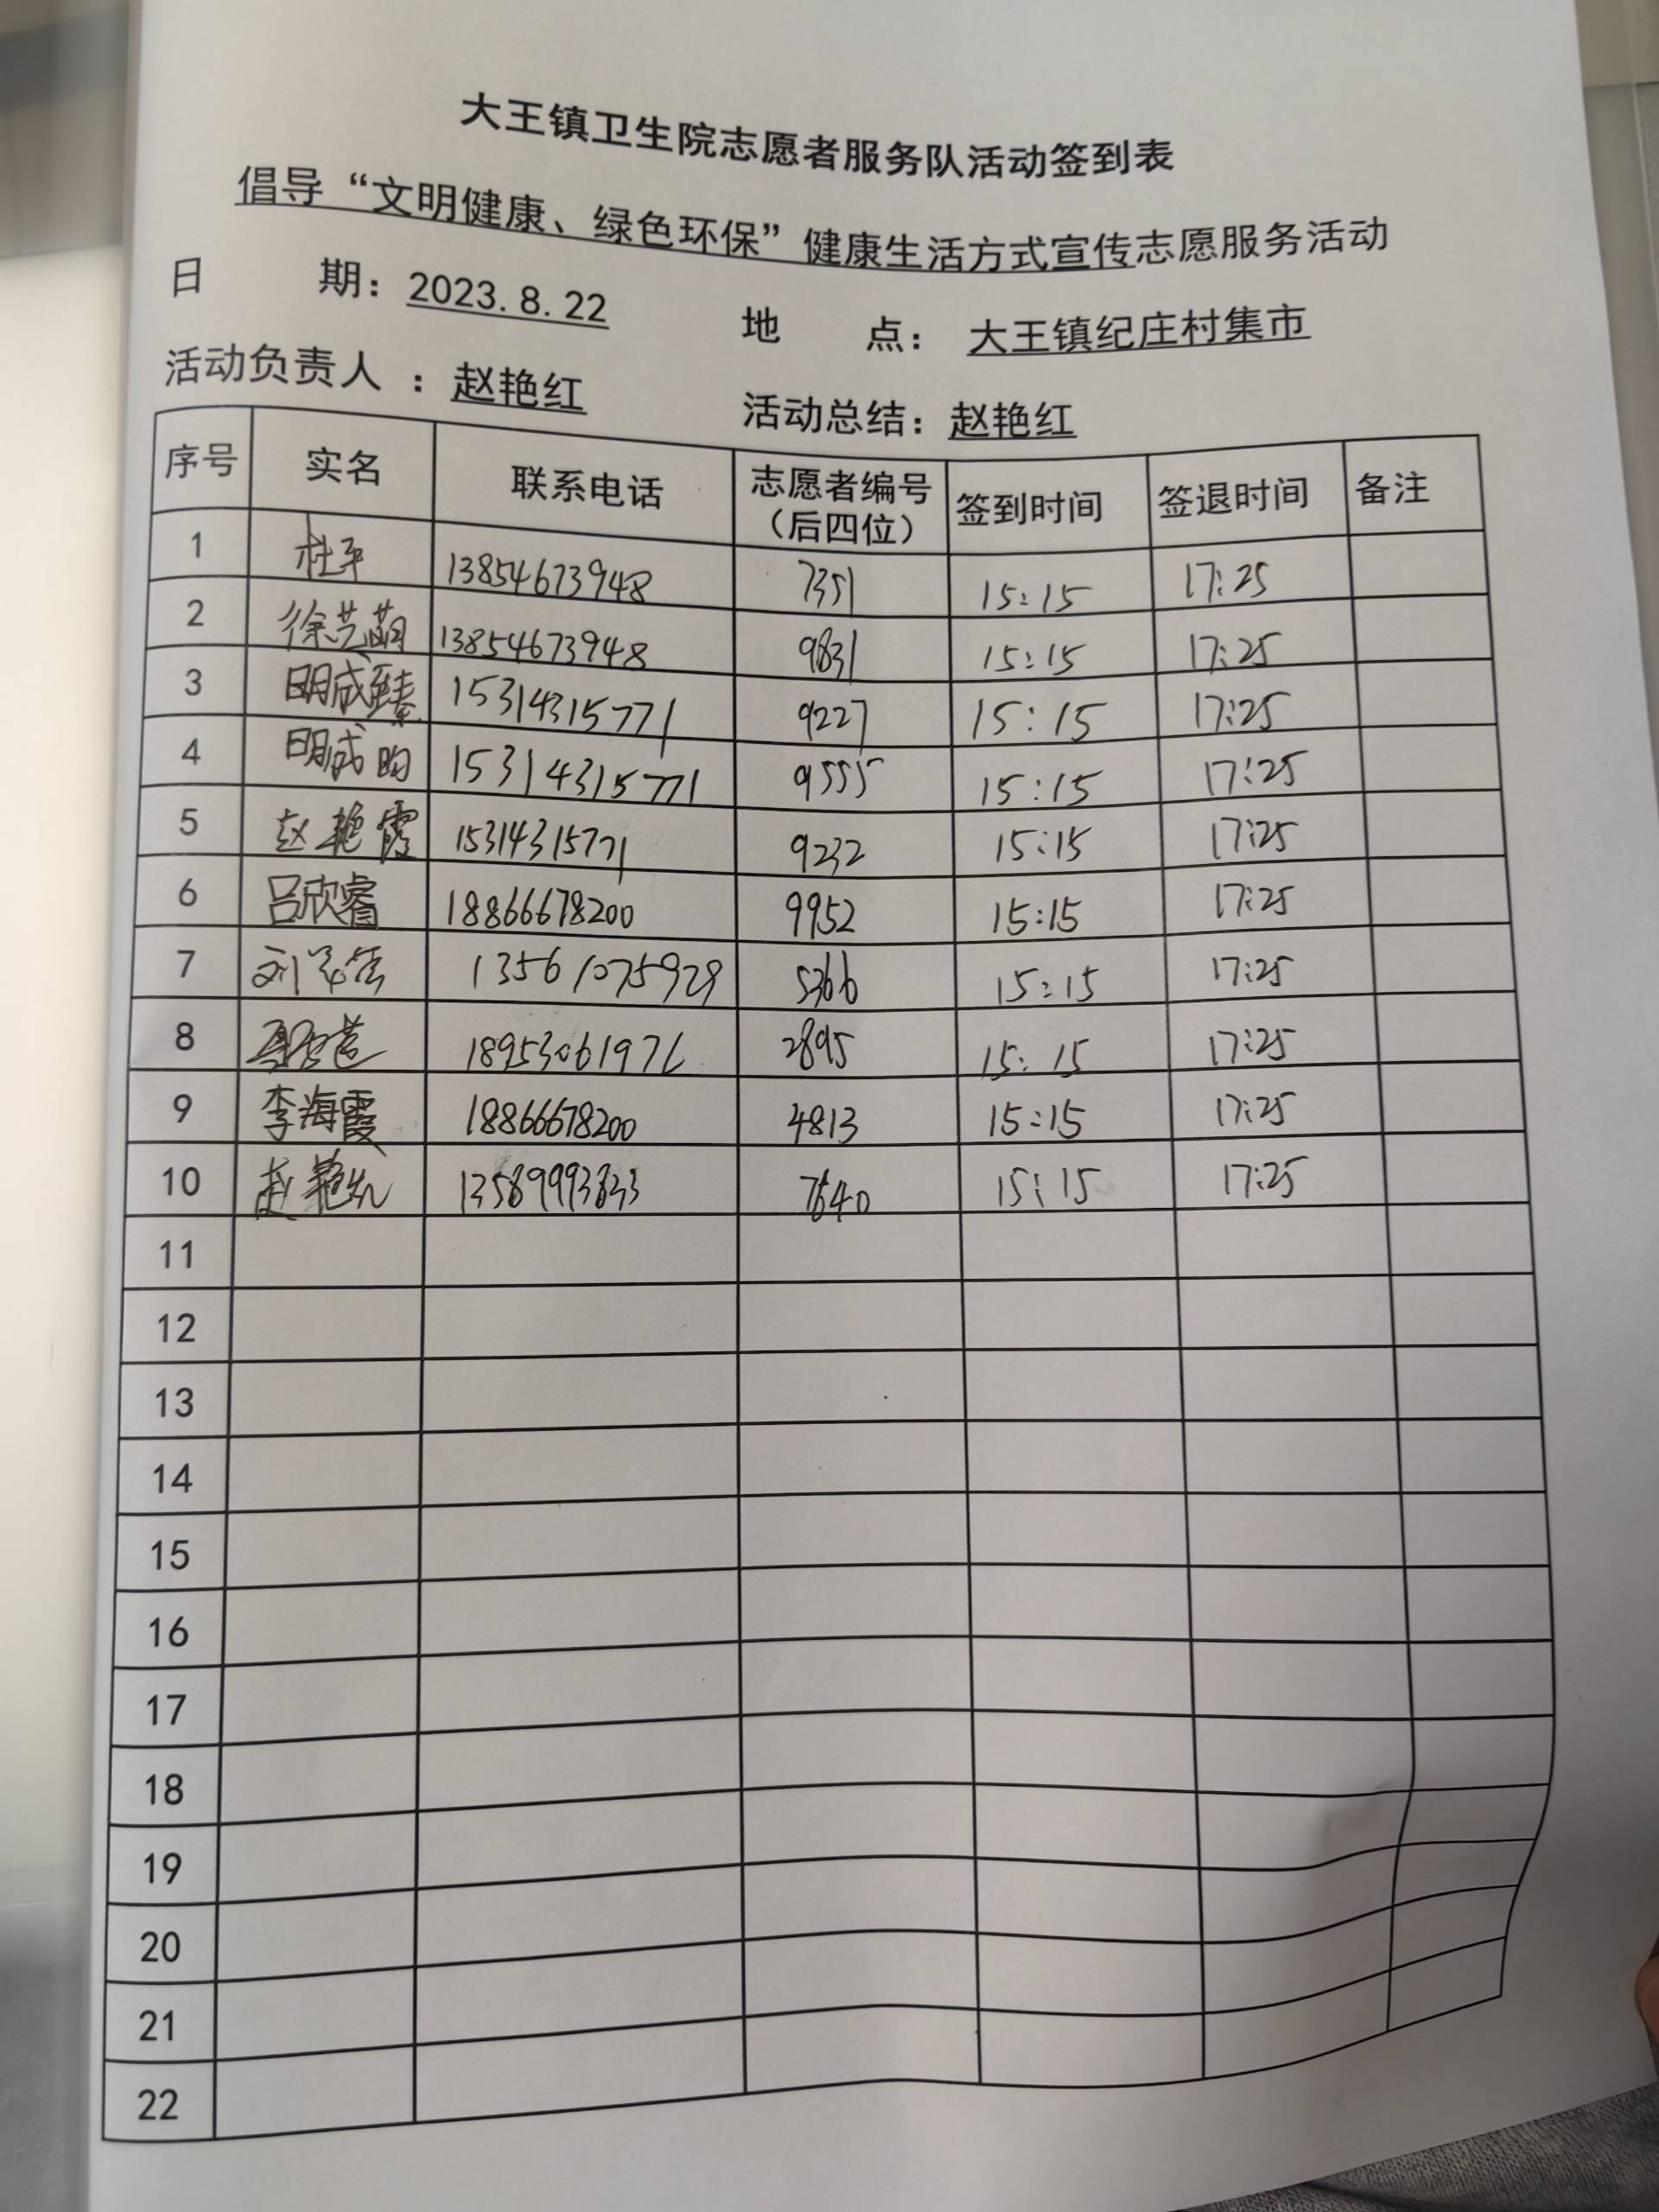 大王镇卫生院志愿者服务队活动签到表
倡导“文明健康、绿色环保”健康生活方式宣传志愿服务活动
日 期：2023.8.22 地 点：大王镇纪庄村集市
活动负责人：赵艳红 活动总结：赵艳红
序号 实名 联系电话 志愿者编号（后四位） 签到时间 签退时间 备注
1 杜平 13854673948 7351 15:15 17:25
2 徐艺萌 13854673948 9831 15:15 17:25
3 明成臻 15314315771 9227 15:15 17:25
4 明成昀 15314315771 9555 15:15 17:25
5 赵艳霞 15314315771 9232 15:15 17:25
6 吕欣睿 18866678200 9952 15:15 17:25
7 刘 13561075929 5366 15:15 17:25
8 18953061976 2895 15:15 17:25
9 李海霞 18866678200 4813 15:15 17:25
10 赵艳红 13589993833 7640 15:15 17:25
11
12
13
14
15
16
17
18
19
20
21
22